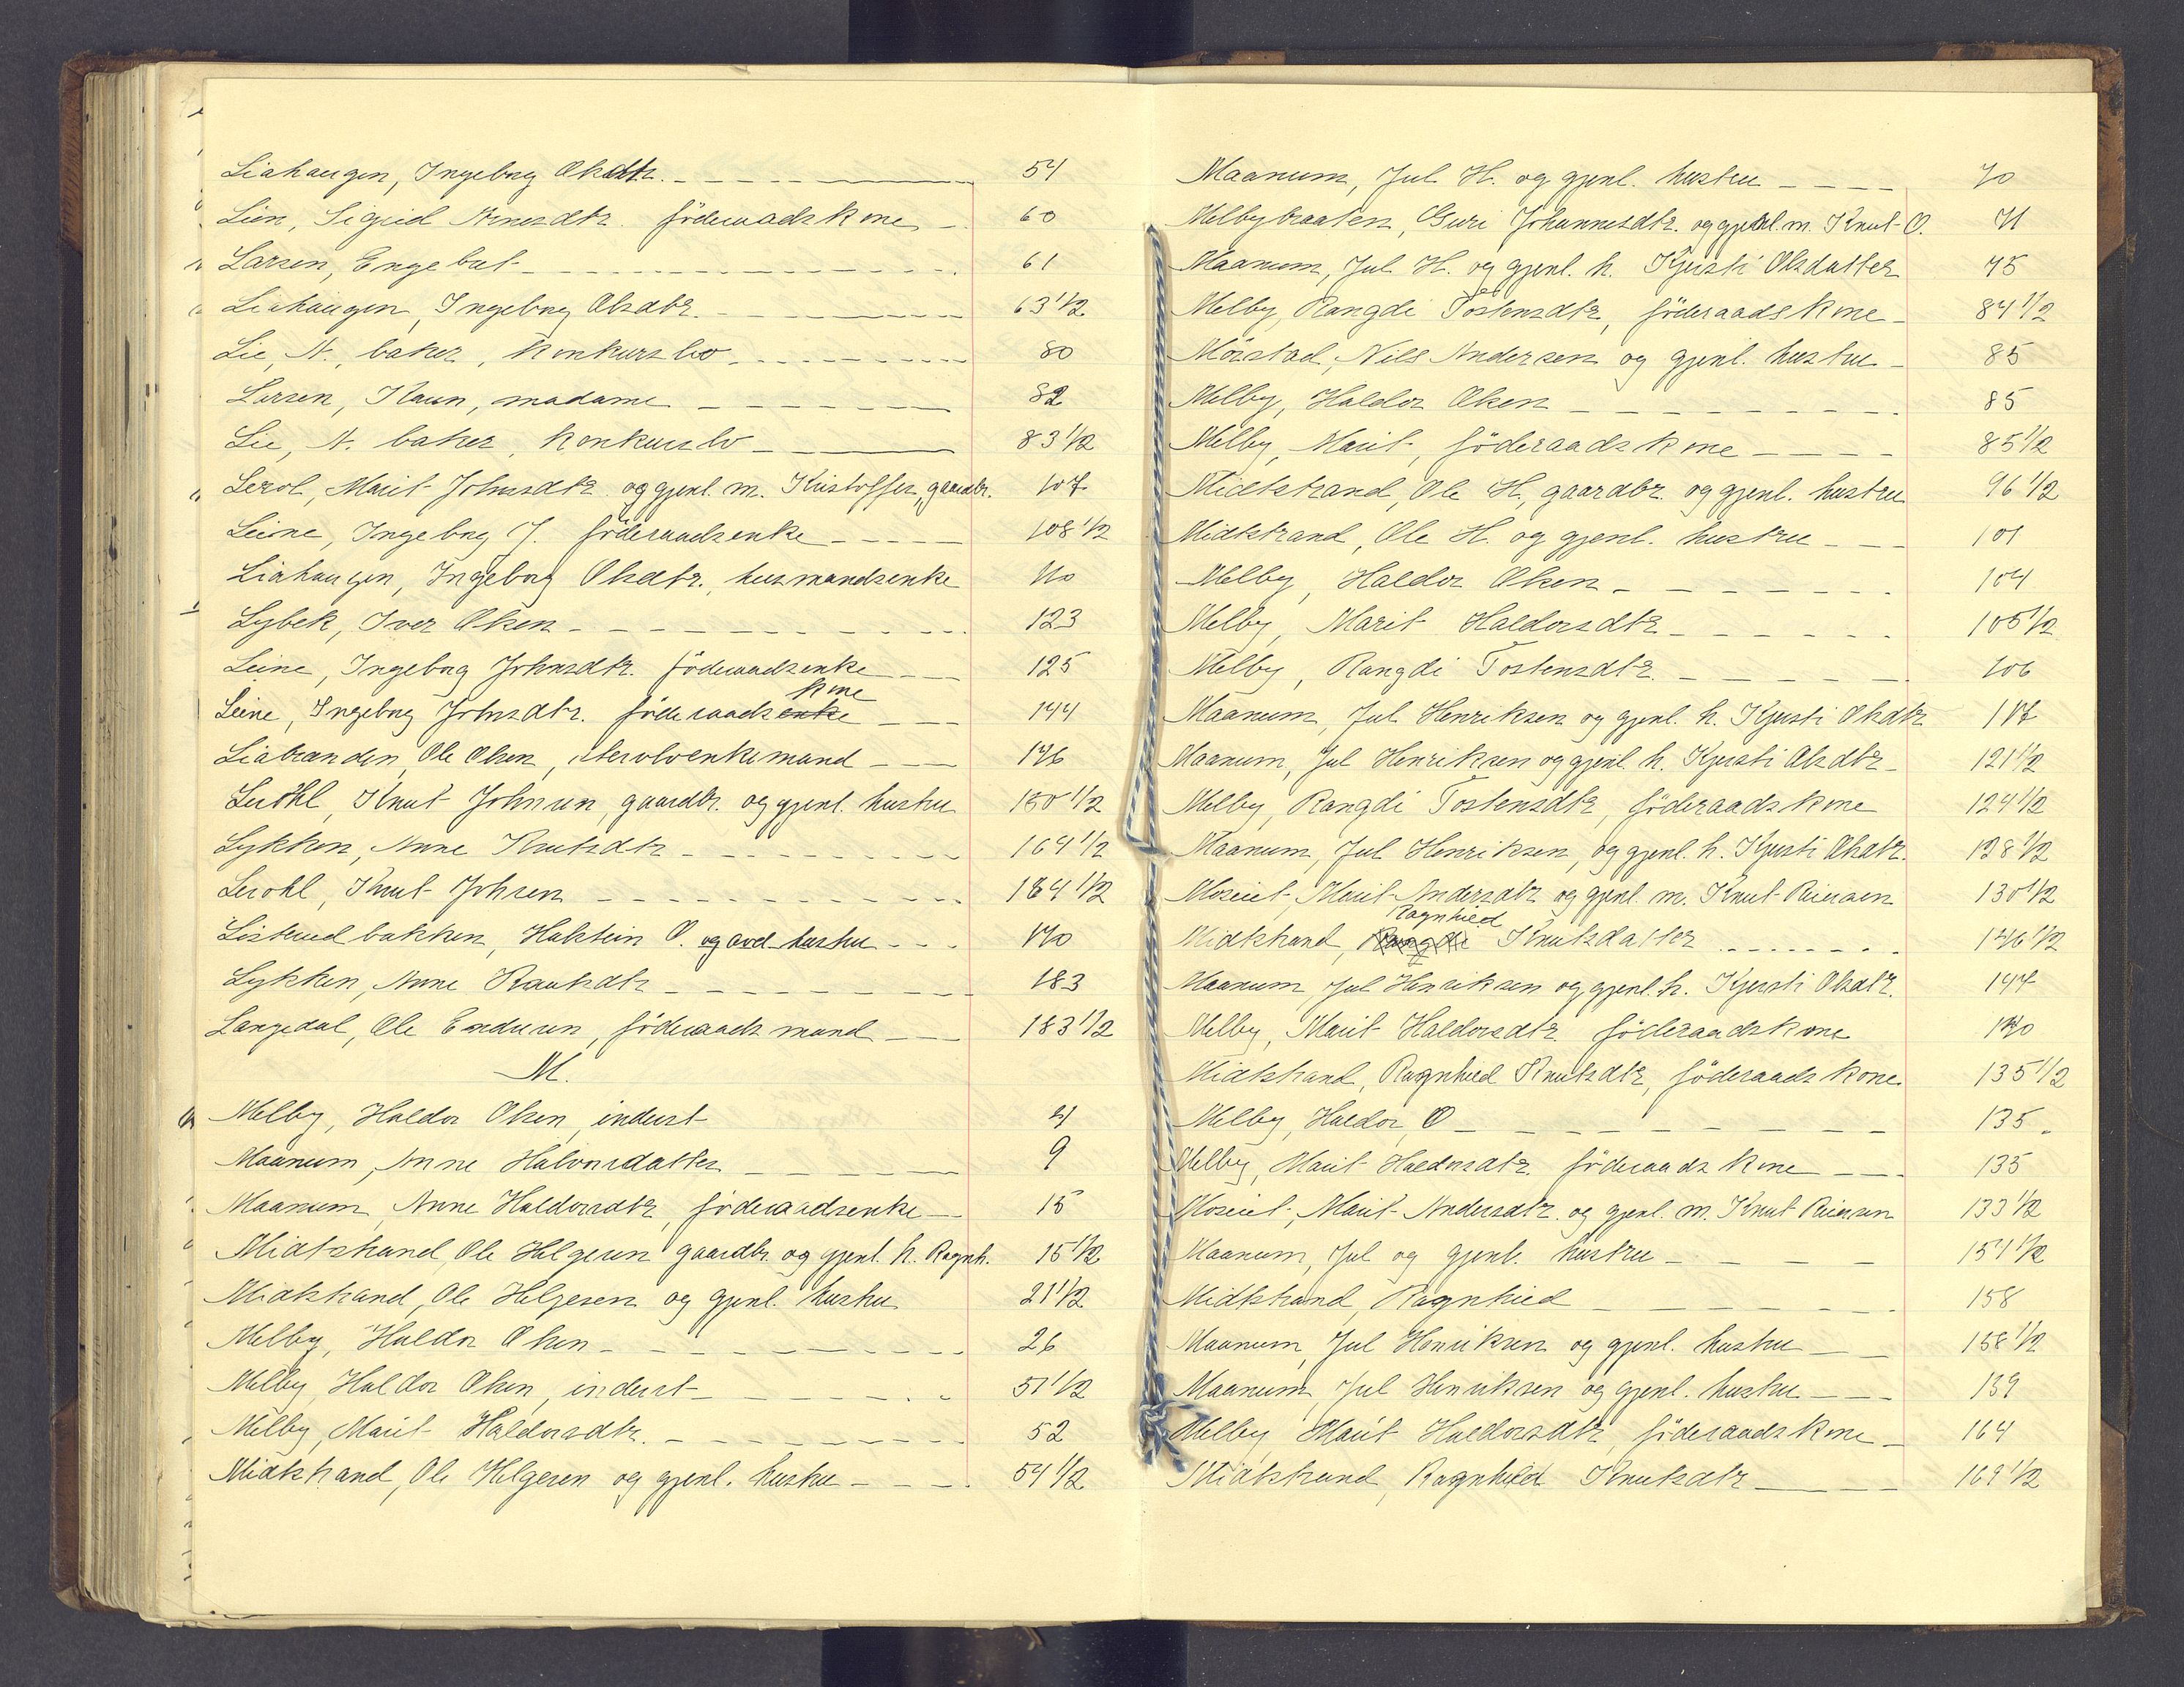 Liahaugen, Ingeborg Olsdtr. 54
Lien, Sigrid Arnesdtr. föderaadskone 60
Larsen, Engebret 61
Liahaugen, Ingeborg Olsdtr. 63 1/2
Lie, A. baker, konkursbo 80
Larsen, Karen, madame 82
Lie, A. baker, konkursbo 83 1/2
Lerol, Marit Johnsdtr. og gjenl. m. Kristoffer, gaardbr. 107
Leine, Ingeborg J. föderaadsenke 108 1/2
Liahaugen, Ingeborg Olsdtr., husmandsenke 110
Lybek, Iver Olsen 123
Leine, Ingeborg Johnsdtr. föderaadsenke 125
kone
Leine, Ingeborg Johnsdtr. föderaadsenke 144
Liabraaden, Ole Olsen, enkemand 146
Leröhl, Knut Johnsen, gaardbr. og gjenl. hustru 150 1/2
Lykken, Anne Knutsdtr 164 1/2
Leröhl, Knut Johsen 164 1/2
Listuedbakken, Halstein O. og avd. hustru 170
Lykken, Anne Knutsdtr 183
Langedal, Ole Endresen, föderaadsmand 183 1/2
M.
Melby, Haldor Olsen, inderst 4
Maanum, Anne Halvorsdatter 9
Maanum, Anne Haldorsdtr, föderaadsenke 15
Midtstrand, Ole Helgesen gaardbr. og gjenl. h. Ragnh. 15 1/2
Midtstrand, Ole Helgesen og gjenl. hustru 21 1/2
Melby, Haldor Olsen 26
Melby, Haldor Olsen, inderst 51 1/2
Melby, Marit Haldorsdtr. 52
Midtstrand, Ole Helgesen og gjenl. hustru 54 1/2
Maanum, Jul H. og gjenl. hustru 70
Melbybraaten, Guri Johannesdtr. og gjenl. m. Knut O. 71
Maanum, Jul H. og gjenl. h. Kjersti Olsdatter 75
Melby, Rangdi Tostensdtr, föderaadskone 84 1/2
Mörstad, Nils Andersen og gjenl. hustru 85
Melby, Haldor Olsen 85
Melby, Marit, föderaadskone 85 1/2
Midtstrand, Ole H, gaardbr. og gjenl. hustru 96 1/2
Midtstrand, Ole H. og gjenl. hustru 101
Melby, Haldor Olsen 104
Melby, Marit Haldorsdtr 105 1/2
Melby, Rangdi Tostensdtr. 106
Maanum, Jul Henriksen og gjenl. h. Kjersti Olsdtr 117
Maanum, Jul Henriksen og gjenl. h. Kjersti Olsdtr 121 1/2
Melby, Rangdi Tostensdtr, föderaadskone 124 1/2
Maanum, Jul Henriksen, og gjenl. h. Kjersti Olsdtr. 128 1/2
Moseiet, Marit Andersdtr og gjenl. m. Knut Reiersen 130 1/2
Ragnhild
Midtstrand, Rangdi Knutsdatter 146 1/2
Maanum Jul Henriksen og gjenl. h. Kjersti Olsdtr. 147
Melby, Marit Haldorsdtr föderaadskone 140
Midtstrand, Ragnhild Knutsdtr, föderaadskone 135 1/2
Melby, Haldor, O 135
Melby, Marit Haldorsdtr. föderaadskone 135
Moseiet, Marit Andersdtr. og gjenl. m. Knut Reiersen 133 1/2
Maanum, Jul og gjenl. hustru 151 1/2
Midtstrand, Ragnhild 158
Maanum, Jul Henriksen og gjenl. hustru 158 1/2
Maanum, Jul Henriksen og gjenl. hustru 159
Melby, Marit Haldorsdtr, föderaadskone 164
Midtstrand, Ragnhild Knutsdtr 169 1/2